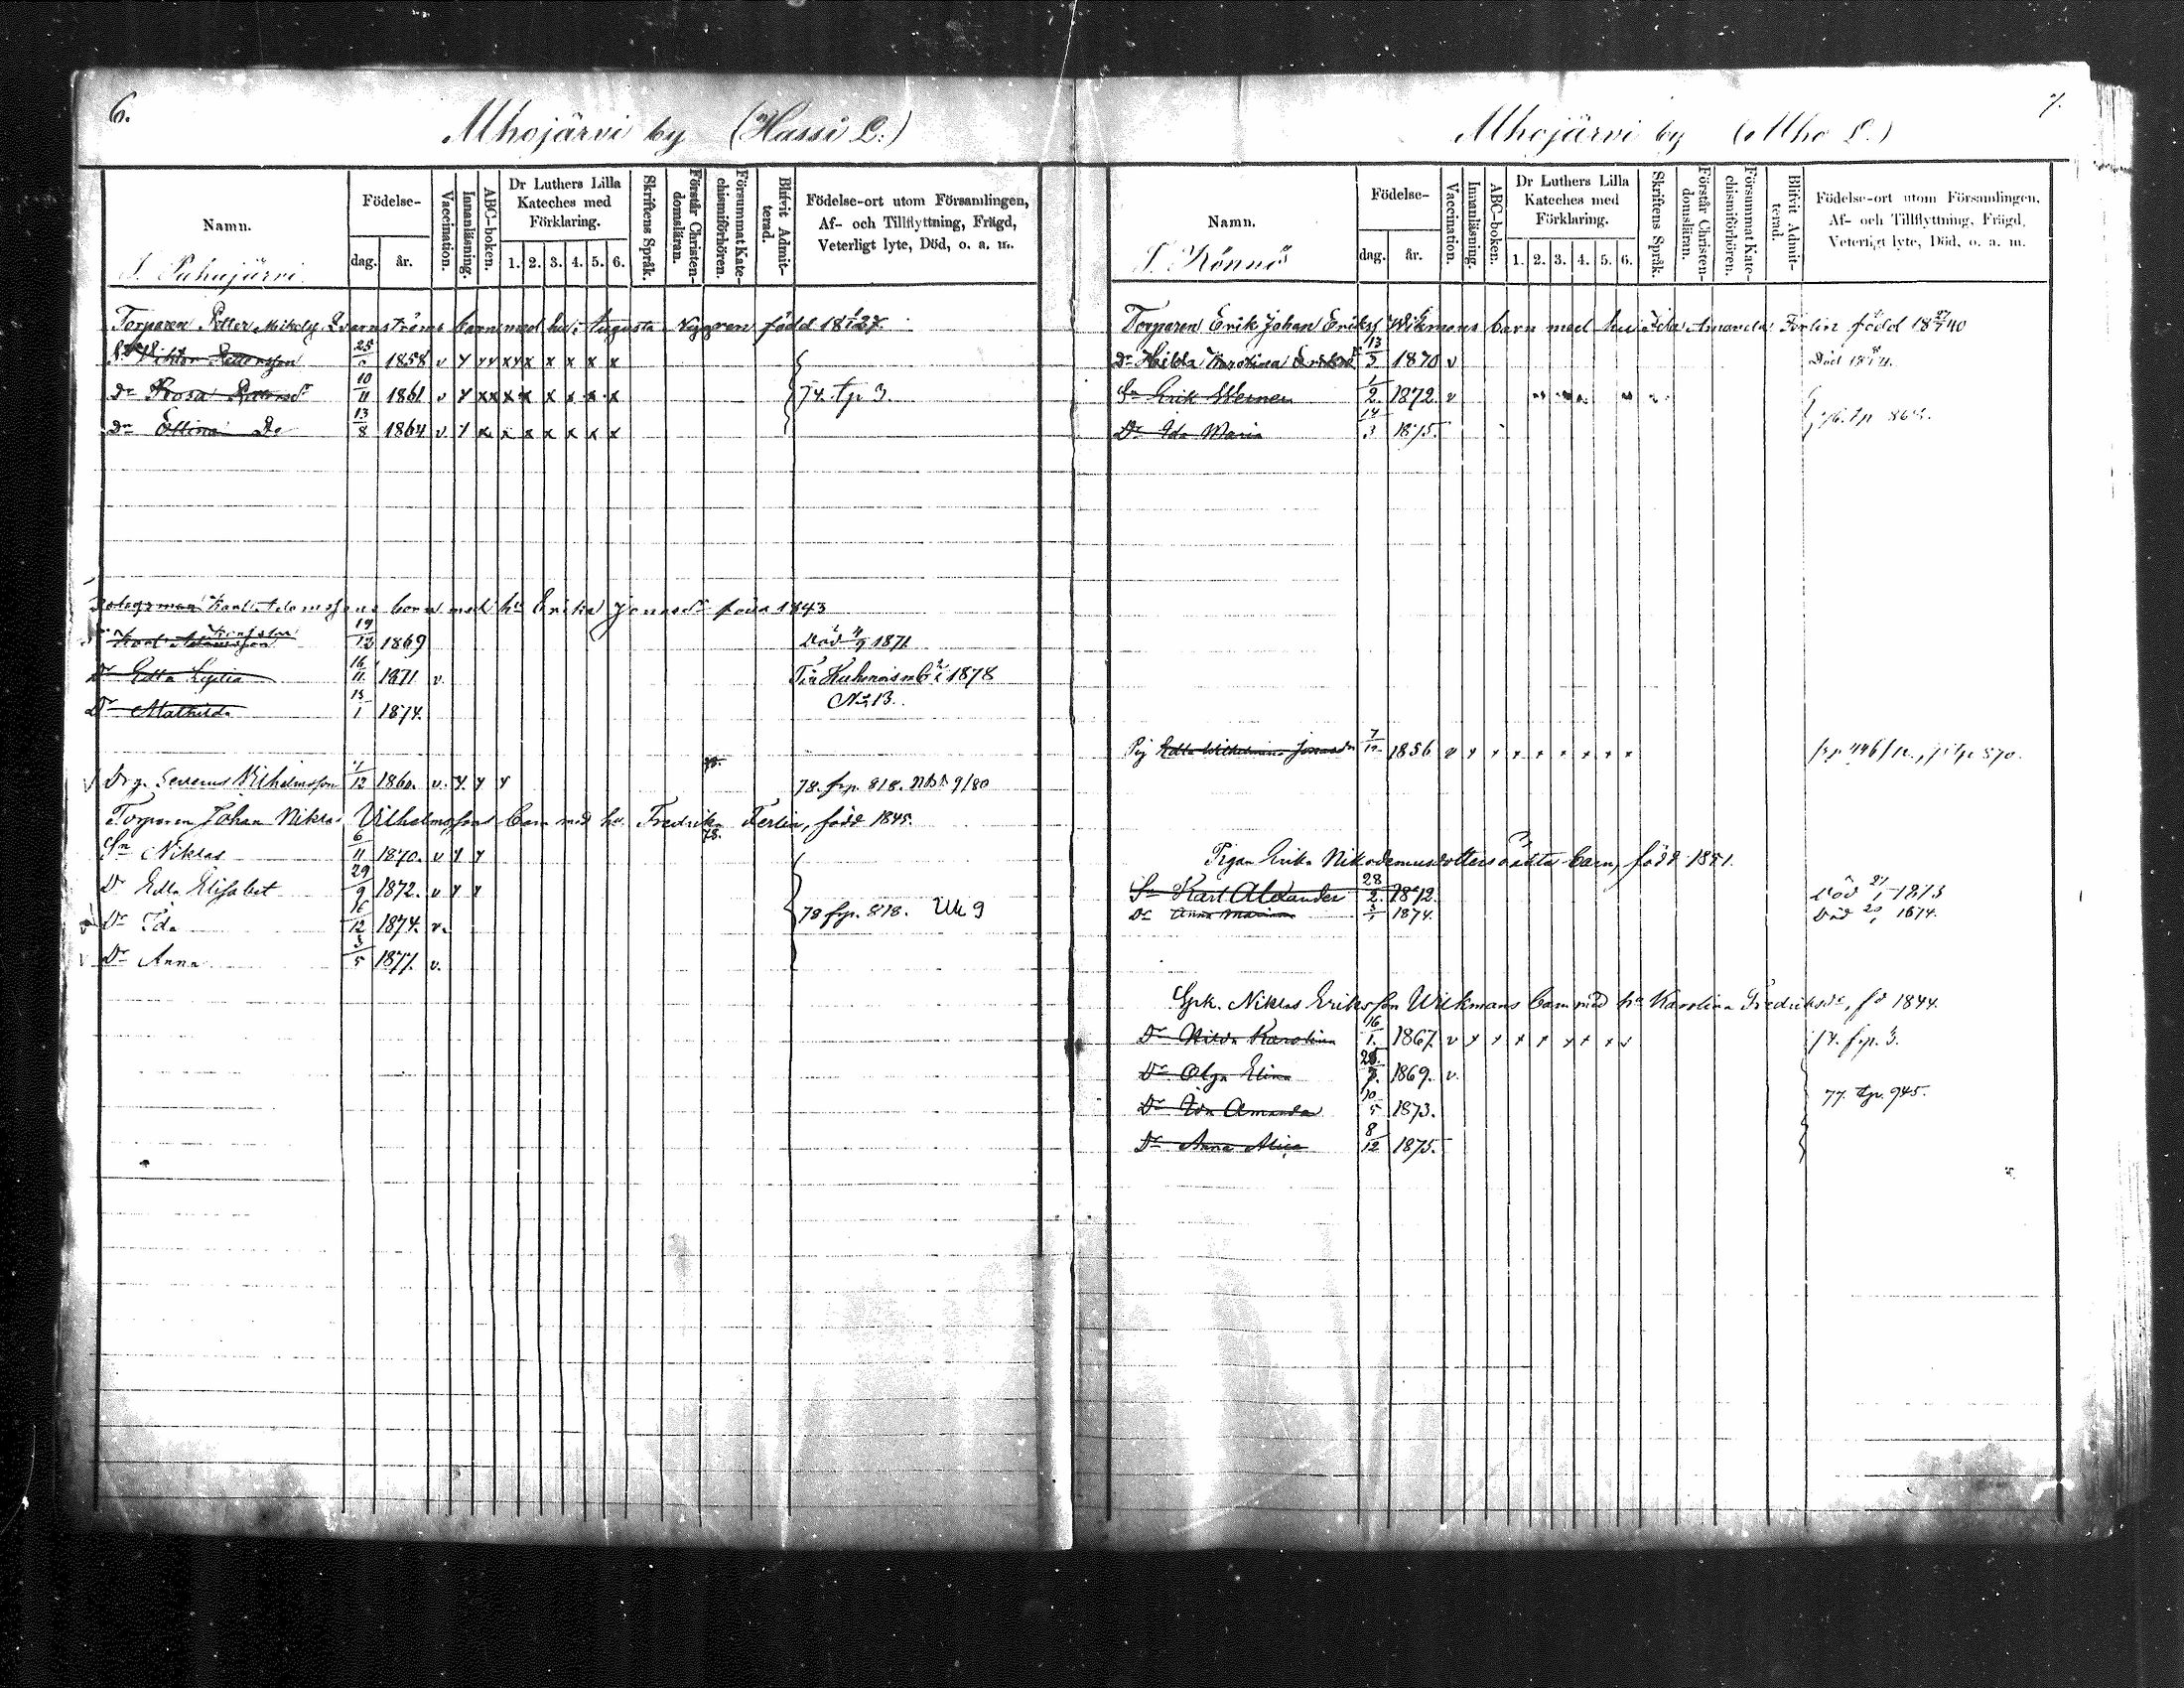 6.
Uhojärvi by (Hassi L.)
Namn.
Födelse-
dag.
år.
Vaccination.
Innanläsning.
ABC-boken.
Dr Luthers Lilla Kateches med Förklaring.
1. 2. 3. 4. 5. 6.
Skriftens Språk.
Förstår Christen-domsläran.
Försummat Kate-chismiförhören.
Blifvit Admit-terad.
Födelse-ort utom Församlingen,
Af- och Tillflyttning, Frägd,
Veterligt lyte, Död, o. a. m.
T. Puhujärvi
Torparen Petter barn med hu: Augusta Nygren född 1827.
Sn Viktor Pettersson 1858 v y xx xx x x x x x
Dr Rosa 10/11 1861 v y xx x x x x x x
74. fp 3.
Dr Ellina Do 13/8 1864 v y x x x x x x x
barn med hu Erika Jonasdr född 1843
19/12 1869 död 1871
Dr Edla Lydia 16/11 1971 v. 1878
No 13.
Dr Mathilda 13/1 1874.
Drg. Severus Wilhelmsson 12 1860. v. y y y 78. frp. 818. 9/80
Torparen Johan Niklas Vilhelmssons barn med hu. Fredrika Ferlin, född 1845.
78.
Sn Niklas 6/11 1870. v y y
Dr Edla Elisabet 29/9 1872. v y y
78 frp. 818. 9
Dr Ida 16/12 1874. v.
Dr Anna 3/5 1877. v.
7.
Uhojärvi by (Uho L.)
Namn.
Födelse-
dag.
år.
Vaccination.
Innanläsning.
ABC-boken.
Dr Luthers Lilla Kateches med Förklaring.
1. 2. 3. 4. 5. 6.
Skriftens Språk.
Förstår Christen-domsläran.
Försummat Kate-chismiförhören.
Blifvit Admit-terad.
Födelse-ort utom Församlingen,
Af- och Tillflyttning, Frägd,
Veterligt lyte, Död, o. a. m.
T. Rönni
Torparen Erik Johan Erikss Wikmans barn med hu Ida Amanda Ferlin född 1840
Dr Hilda Karolina 13/3 1870 v Död
Sn Erik Werner 1/2 1872 v
76. fp 864.
Dr Ida Maria 14/3 1875.
Pig Edla Wilhelmina Jonasdr 7/12 1856 v
Pigan Erika Nikodemusdotters oäkta barn, född 1851.
Sn Karl Alexander 28/2 1872. Död 1873
Dr Anna Maria 1874. Död 1874.
Niklas Eriksson Wikmans barn med hu Karolina Fredriksdr, fd 1844.
Dr Hilda Karolina 16/1. 1867. v 74. frp. 3.
Dr Olga Elina 1869. v.
Dr Ida Amanda 10/5 1873.
77. fp. 945.
Dr Anna Alina 8/12 1875.